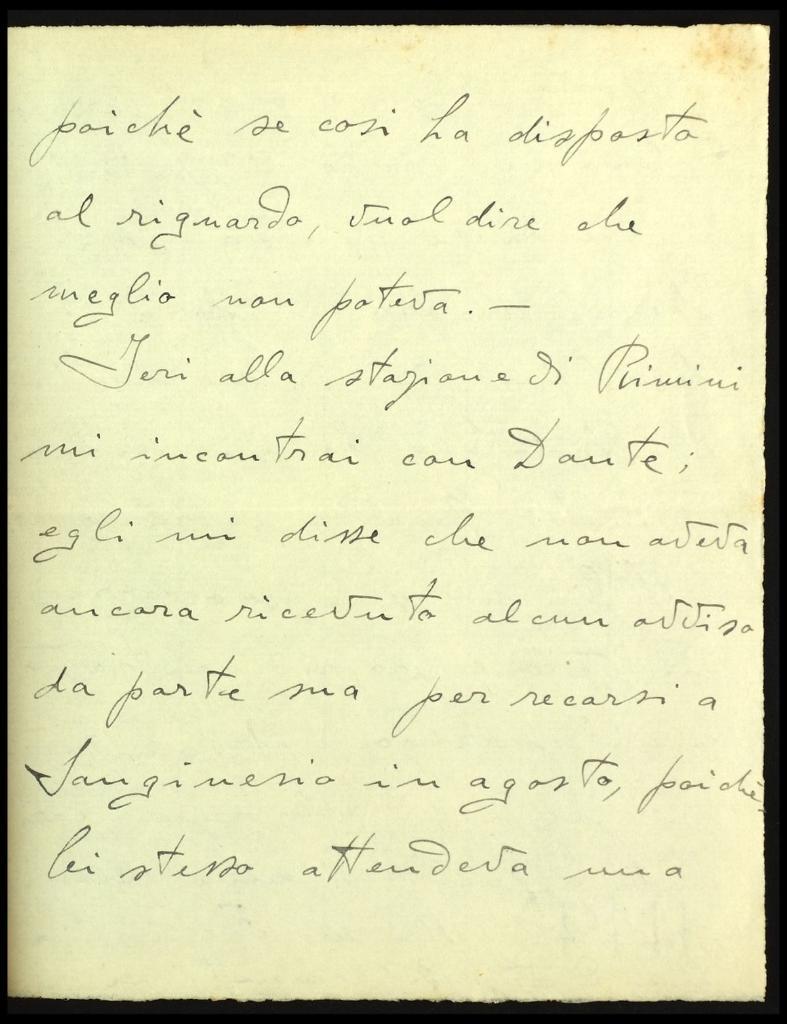 poichè se cosi ha disposto
al riguardo, vuol dire che
meglio non poteva. —
Jeri alla stazione di Rimini
mi incontrai con Dante;
egli mi disse che non aveva
ancora ricevuto alcun avviso
da parte sua per recarsi a
Sanginesio in agosto, poichè
lei stesso attendeva una